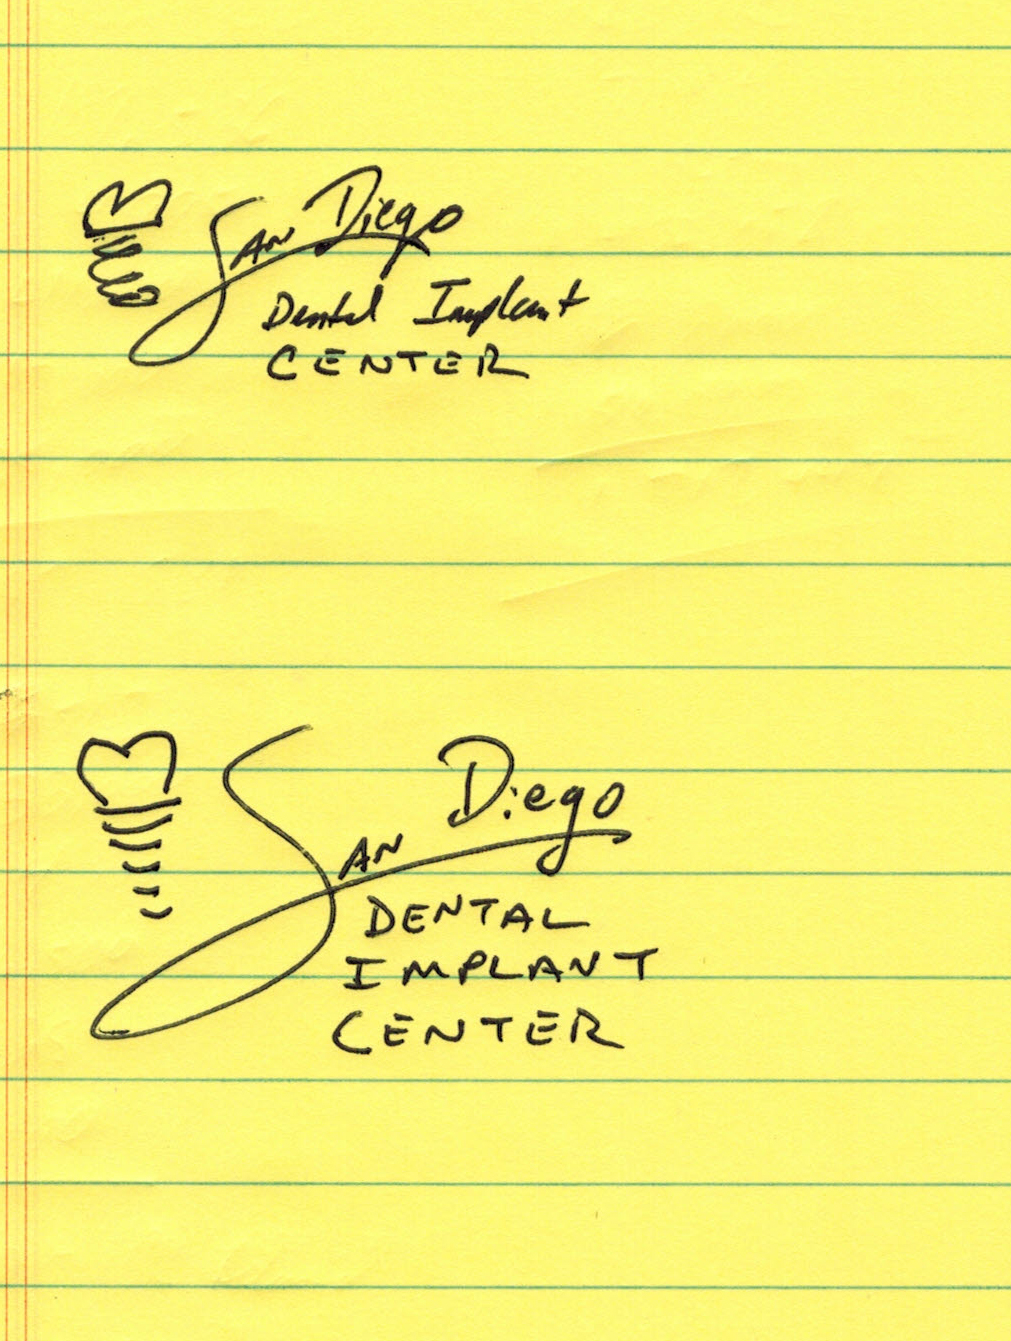 SAN Diego
Dental Implant
CENTER
SAN Diego
DENTAL
IMPLANT
CENTER